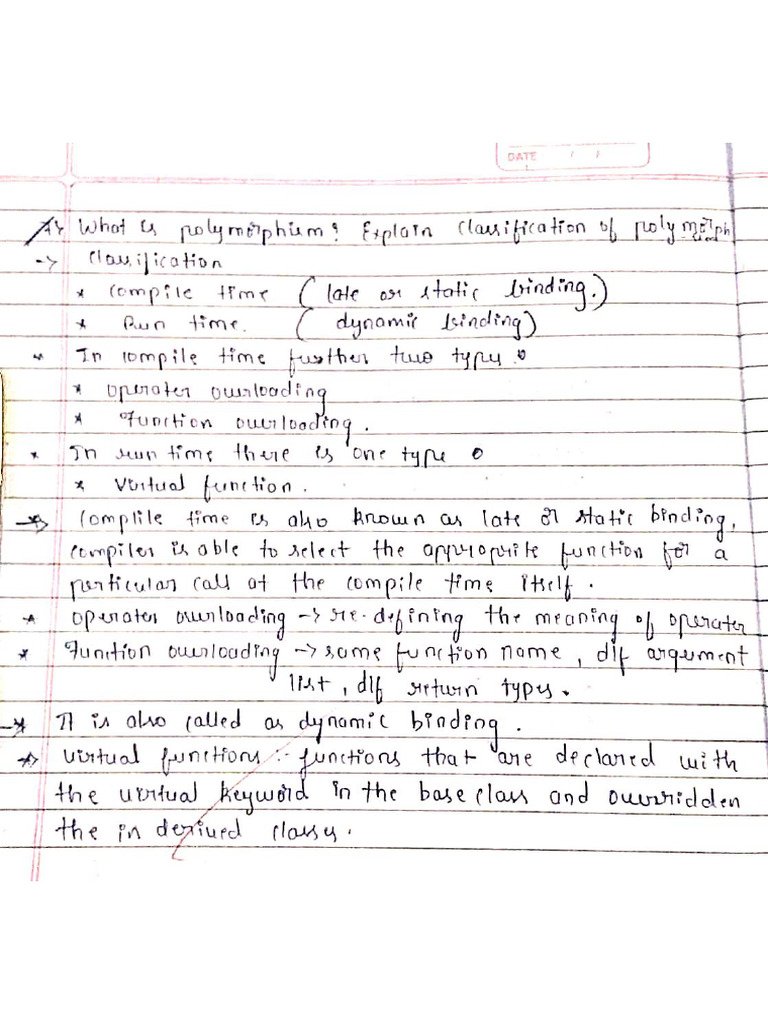 DATE / /
What is polymorphism? Explain classification of polymorph
-> Classification
* Compile time (late or static binding.)
* Run time. (dynamic binding)
* In compile time further two types :
* operater overloading
* Function overloading.
* In run time there is one type :
* Virtual function.
-> Complile time is also known as late or static binding,
compiler is able to select the approprite function for a
perticular call at the compile time itself.
* operater overloading -> re-defining the meaning of operater
* Function overloading -> same function name, dif argument
list, dif return types.
-> It is also called as dynamic binding.
-> Virtual functions :- functions that are declared with
the virtual keyword in the base class and ouverridden
the in derived classes.